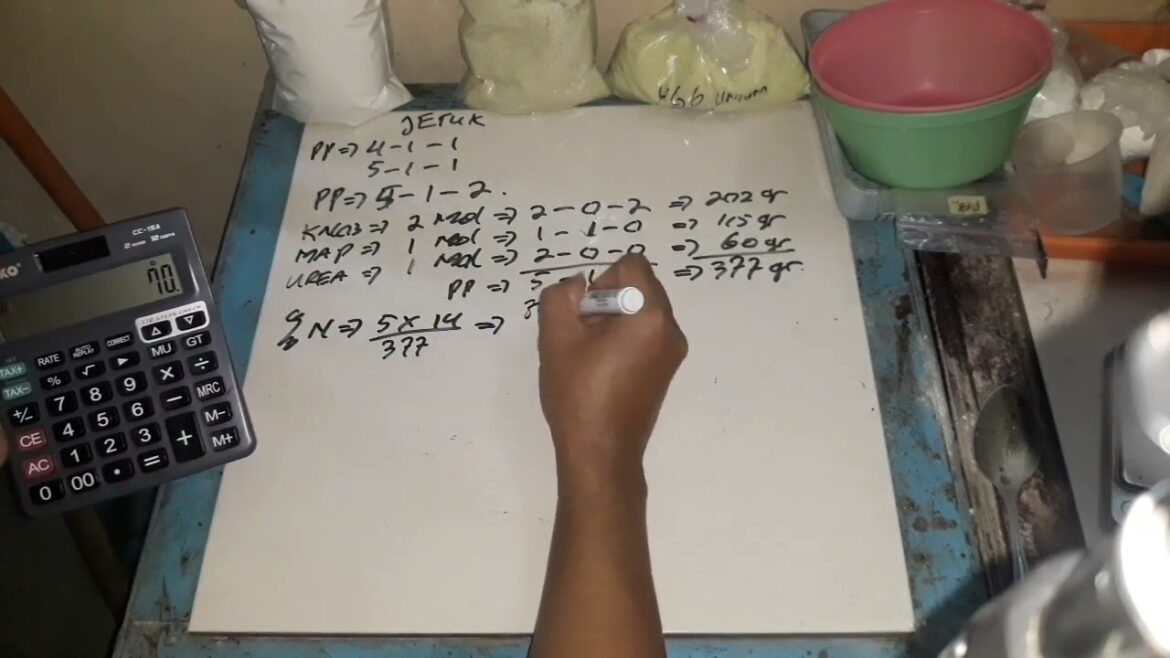 JERUK
PP => 4-1-1
5-1-1
PP => 5-1-2.
KNO3 => 2 mol => 2-0-2 => 202 gr
MAP => 1 mol => 1-1-0 => 115 gr
UREA => 1 mol => 2-0-0 => 60 gr
PP => 5 => 377 gr.
% N => 5 x 14 => 
377
CC-15A
70.
TAX+ RATE AUTO REPLAY CORRECT MU GT
TAX- % √ ▶
+/- 7 8 9 × ÷
CE 4 5 6 − MRC
AC 1 2 3 + M−
0 00 • = M+